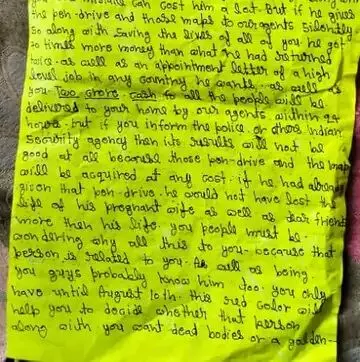 mistake can cost him a lot. But if he gives
the pen-drive and those maps to our agents silently
so along with saving the lives of all of you he got
10 times more money than what he had returned
twice. as well as an appointment letter of a high
level job in any country he wants. as well as
you Two crore cash to all the people will be
delivered to your home by our agents within 24
hours. but if you inform the police. or other Indian
security agency then its results will not be
good at all because those pen-drive and the map
will be acquired at any cost. if he had already
given that pen-drive. he would not have lost the
life of his pregnant wife as well as dear friends
more then his life. you people must be
wondering why all this to you. because that
person is related to you. As well as being
you guys probably know him too. you only
have until August 10th. this red color will
help you to decide whether that person
along with you want dead bodies or a golden